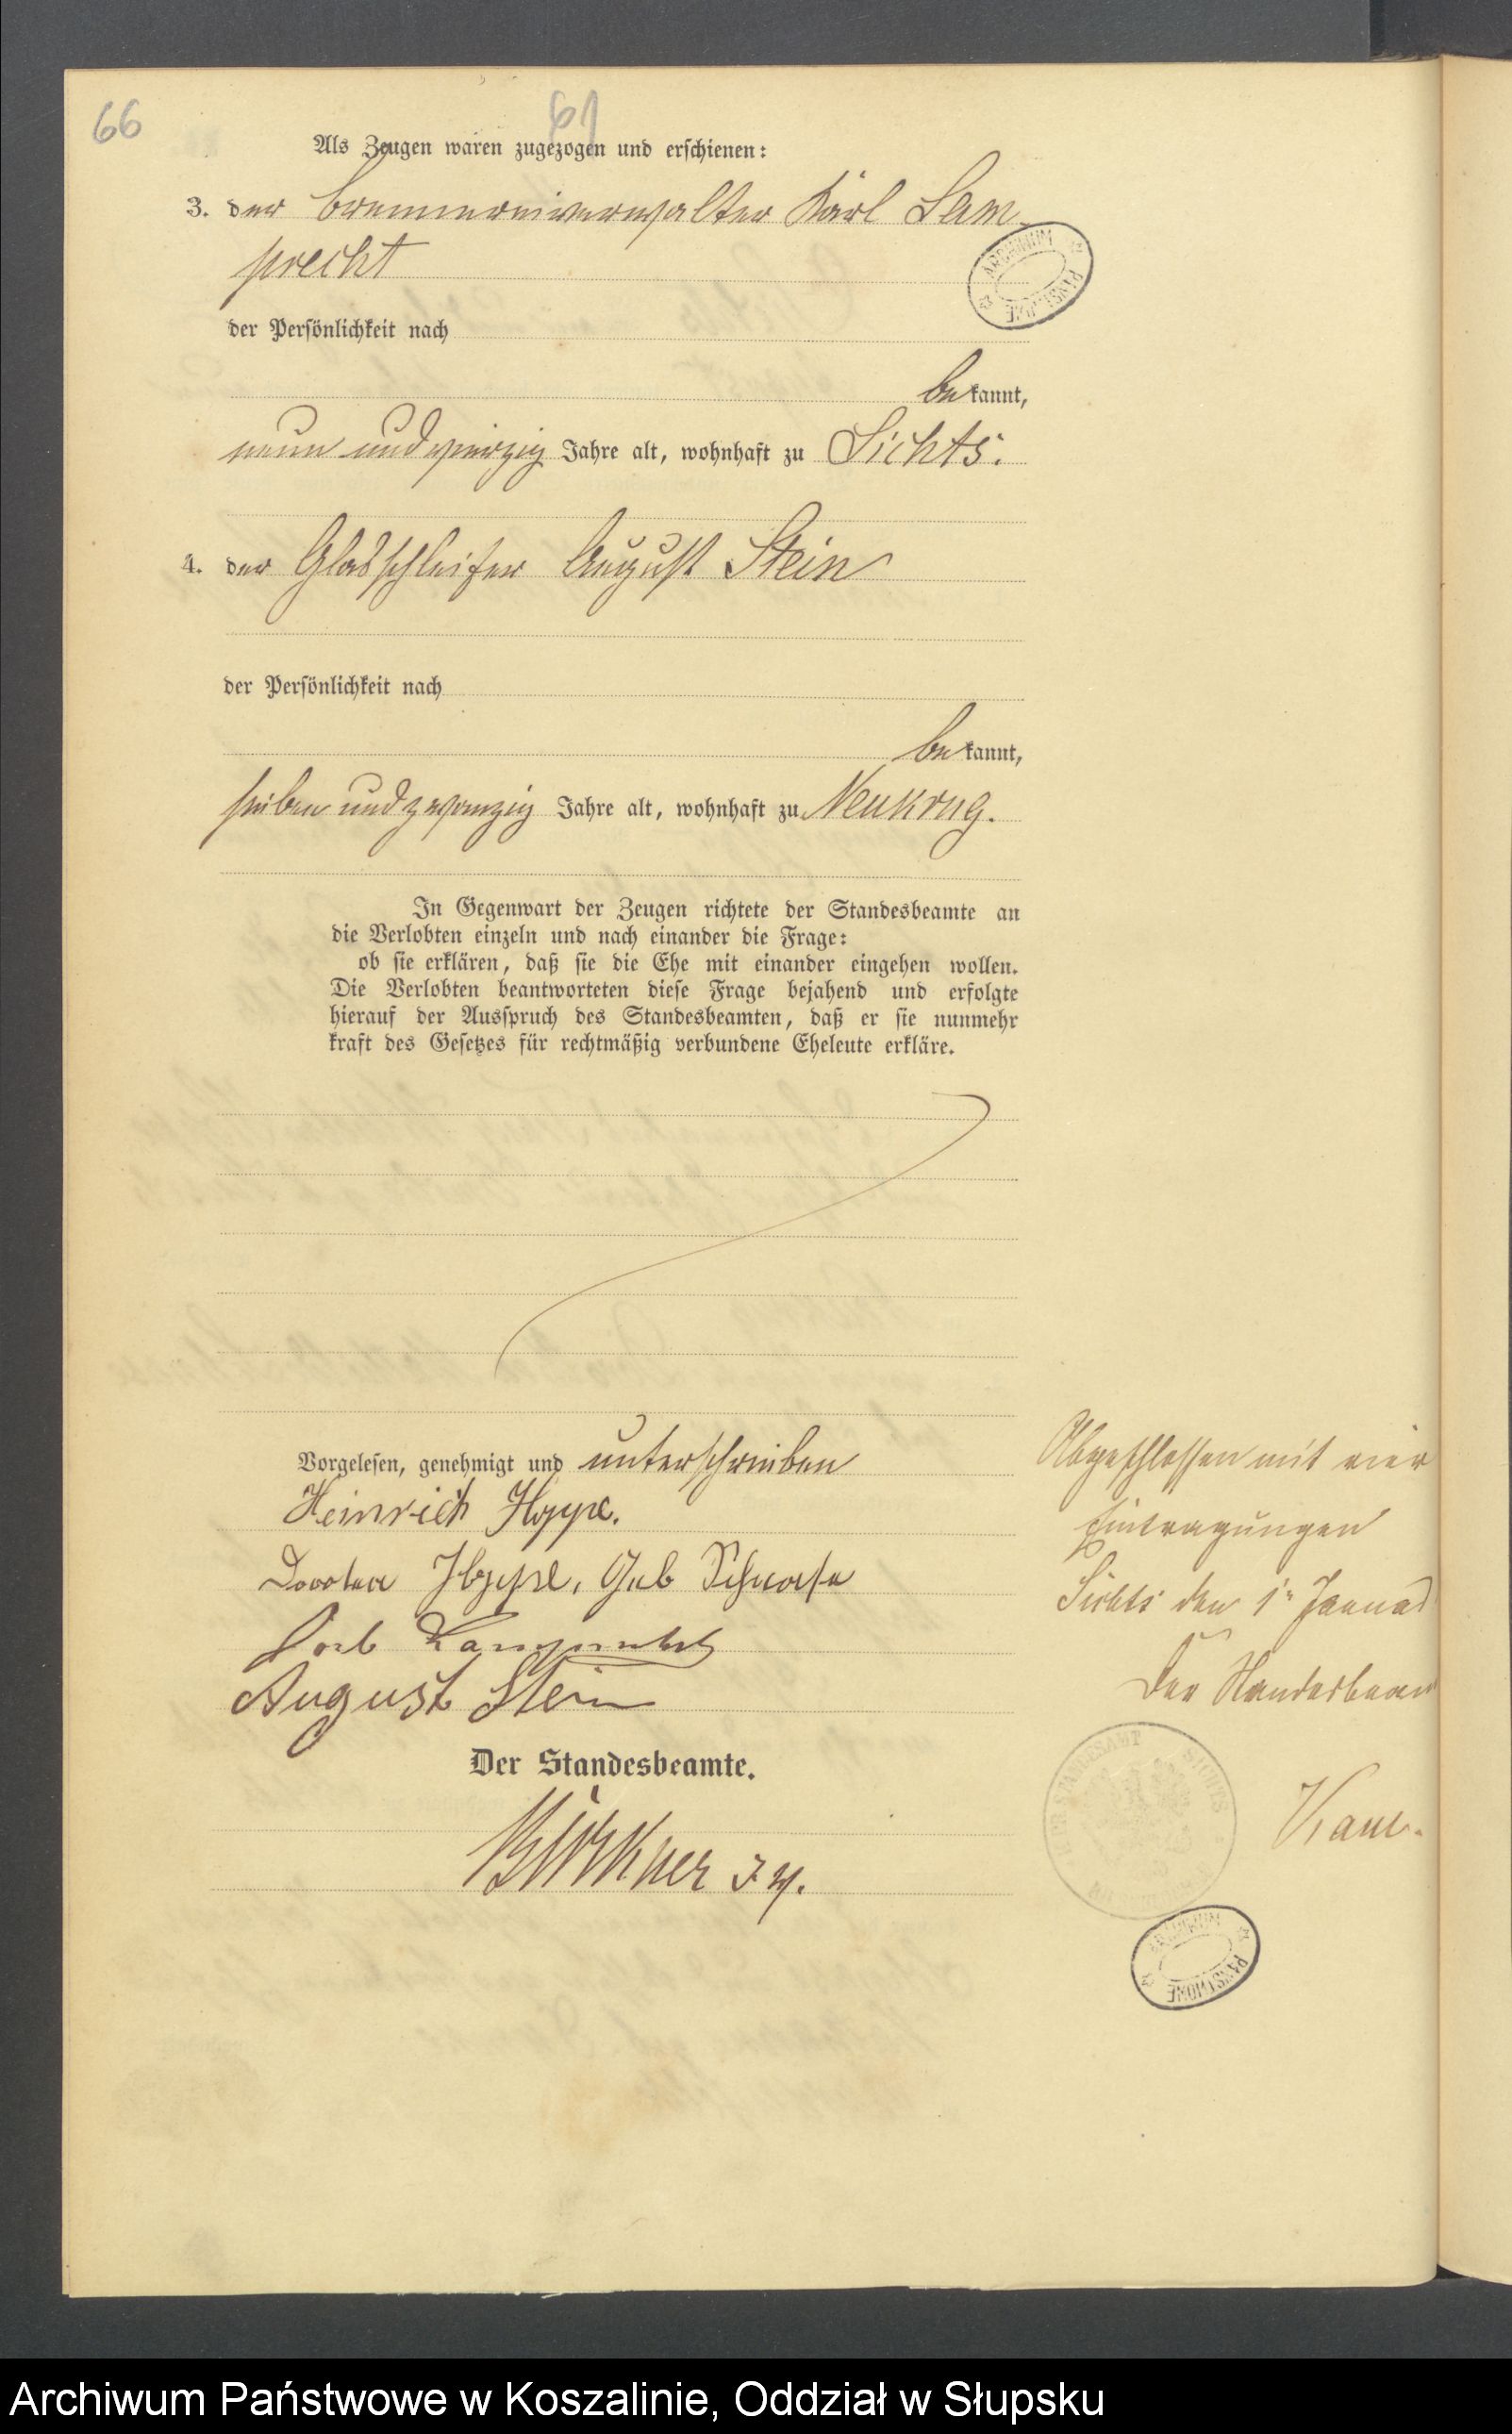 66
61
Als Zeugen waren zugezogen und erschienen:
3. der Brennereiverwalter Karl Lam-
precht
der Persönlichkeit nach
be kannt,
neun und vierzig Jahre alt, wohnhaft zu Lichts.
4. der Glasschleifer August Stein
der Persönlichkeit nach
be kannt,
sieben und zwanzig Jahre alt, wohnhaft zu Neukrug.
In Gegenwart der Zeugen richtete der Standesbeamte an
die Verlobten einzeln und nach einander die Frage:
ob sie erklären, daß sie die Ehe mit einander eingehen wollen.
Die Verlobten beantworteten diese Frage bejahend und erfolgte
hierauf der Ausspruch des Standesbeamten, daß er sie nunmehr
kraft des Gesetzes für rechtmäßig verbundene Eheleute erkläre.
Vorgelesen, genehmigt und unterschrieben
Heinrich Hoppe.
Hoppe, Geb
Lamprecht
August Stein
Der Standesbeamte.
Abgeschlossen mit vier
Eintragungen
den 1. Januar
Der Standesbeam
ARCHIWUM PAŃSTWOWE
Archiwum Państwowe w Koszalinie, Oddział w Słupsku